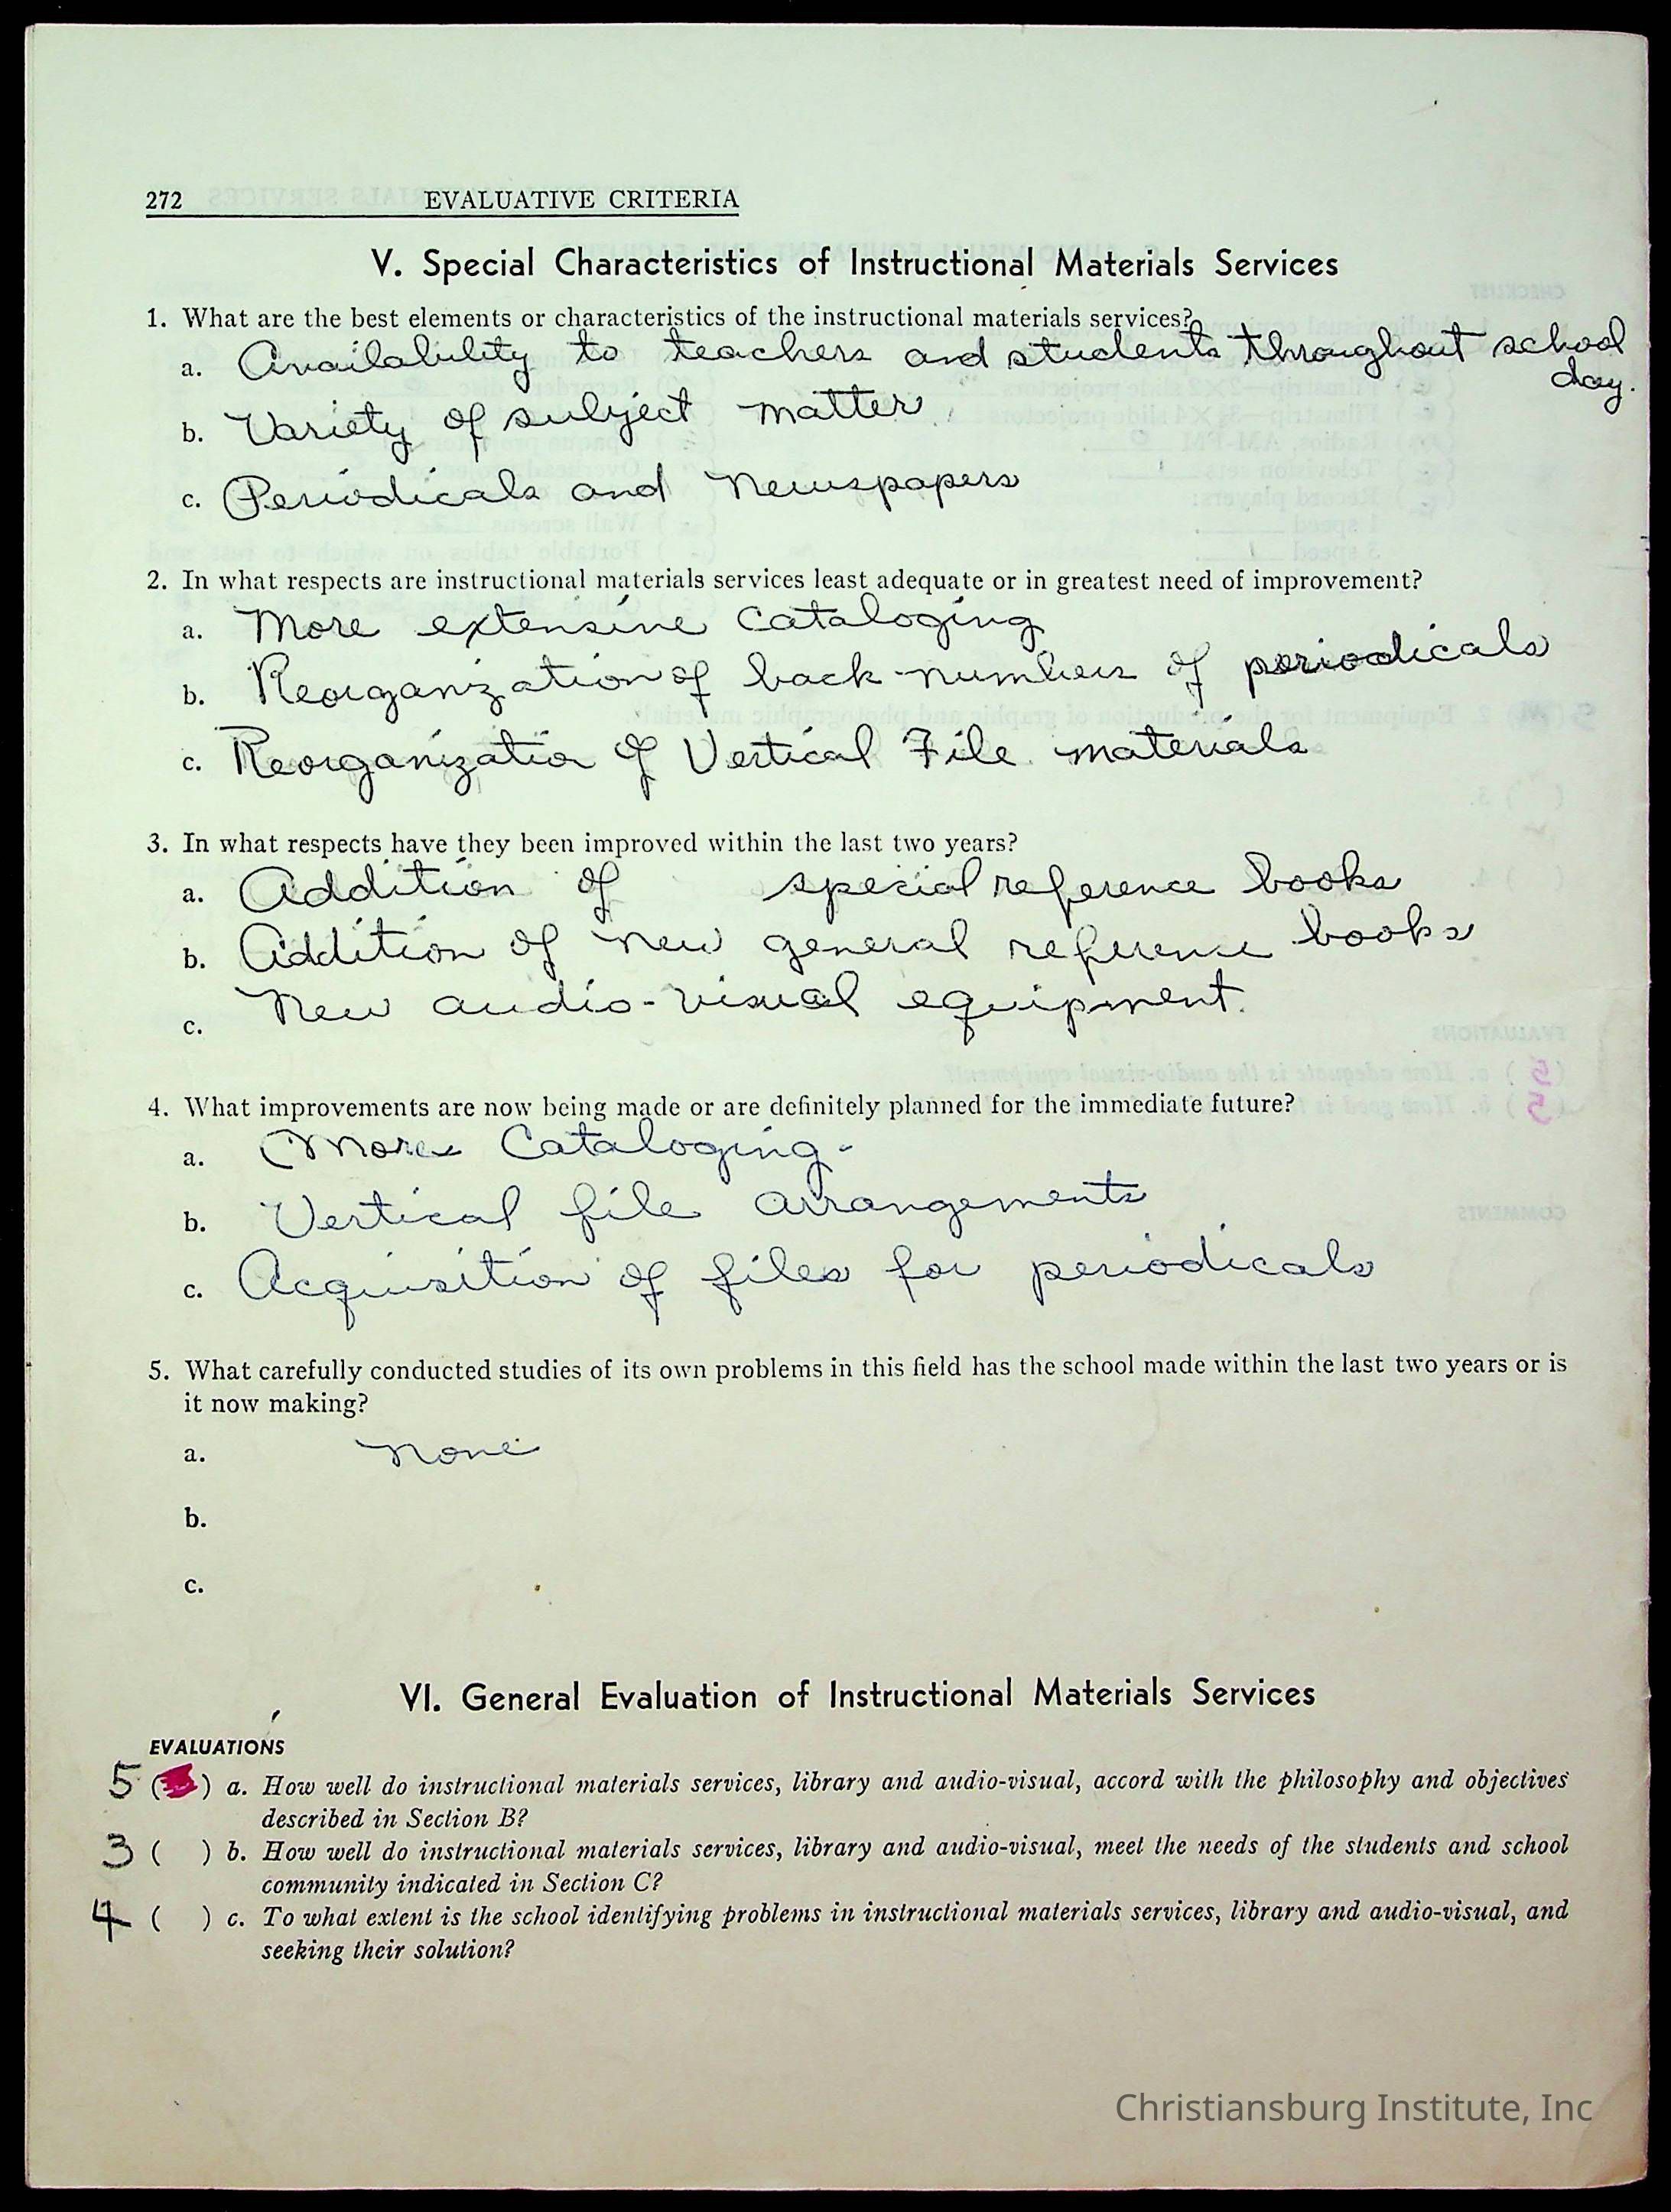 272 EVALUATIVE CRITERIA
V. Special Characteristics of Instructional Materials Services
1. What are the best elements or characteristics of the instructional materials services?
a. Availability to teachers and students throughout school
day.
b. Variety of subject matter
c. Periodicals and Newspapers
2. In what respects are instructional materials services least adequate or in greatest need of improvement?
a. More extensive cataloging
b. Reorganization of back numbers of periodicals
c. Reorganizatio of Vertical File materials
3. In what respects have they been improved within the last two years?
a. Addition of special reference books
b. Addition of new general reference books
c. New audio-visual equipment.
4. What improvements are now being made or are definitely planned for the immediate future?
a. More Cataloging-
b. Vertical file arrangements
c. Acquisition of files for periodicals
5. What carefully conducted studies of its own problems in this field has the school made within the last two years or is
it now making?
a. None
b.
c.
VI. General Evaluation of Instructional Materials Services
EVALUATIONS
5 ( ) a. How well do instructional materials services, library and audio-visual, accord with the philosophy and objectives
described in Section B?
3 ( ) b. How well do instructional materials services, library and audio-visual, meet the needs of the students and school
community indicated in Section C?
4 ( ) c. To what extent is the school identifying problems in instructional materials services, library and audio-visual, and
seeking their solution?
Christiansburg Institute, Inc